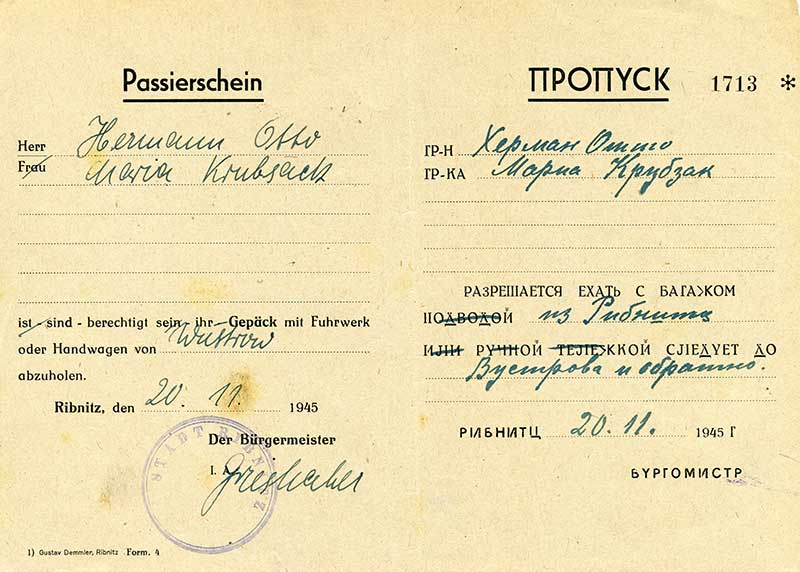 Passierschein
Herr Hermann Otto
Frau Maria Krubsack
ist - sind - berechtigt sein, ihr Gepäck mit Fuhrwerk
oder Handwagen von Wustrow
abzuholen.
Ribnitz, den 20. 11. 1945
Der Bürgermeister
I. A.
STADT RIBNITZ
1) Gustav Demmler, Ribnitz Form. 4
ПРОПУСК 1713 *
ГР-Н Херман Отто
ГР-КА Мариа Крубзак
РАЗРЕШАЕТСЯ ЕХАТЬ С БАГАЖОМ
ПОДВОДОЙ из Рибнитц
ИЛИ РУЧНОЙ ТЕЛЕЖКОЙ СЛЕДУЕТ ДО
Вустрова и обратно.
РИБНИТЦ 20. 11. 1945 Г
БУРГОМИСТР